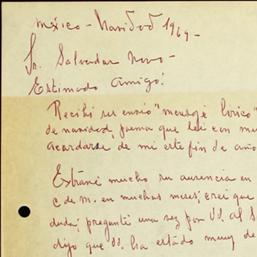 México - Navidad 1969-
Sr. Salvador Novo-
Estimado Amigo:
Recibí su envió "mensaje lírico"
de navidad, poema que leí con mu
acordarse de mi este fin de año
Extrañé mucho su ausencia en
C de M. en muchos meses; creí que
duda; pregunté una vez por Ud. al S
dijo que Ud. ha estado muy de